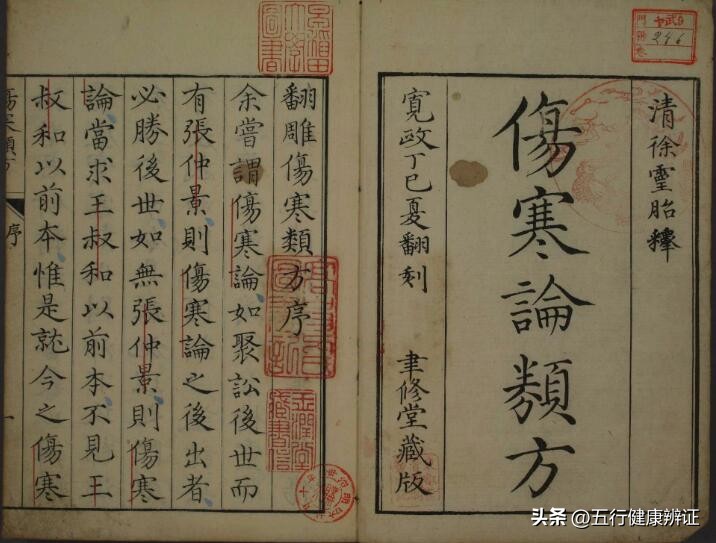 清徐靈胎釋
傷寒論類方
寬政丁巳夏翻刻 聿修堂藏版
翻雕傷寒類方序
余嘗謂傷寒論如聚訟後世而
有張仲景則傷寒論之後出者
必勝後世如無張仲景則傷寒
論當求王叔和以前本不見王
叔和以前本惟是就今之傷寒
傷寒類方
序
一
246
头条 @五行健康辨证